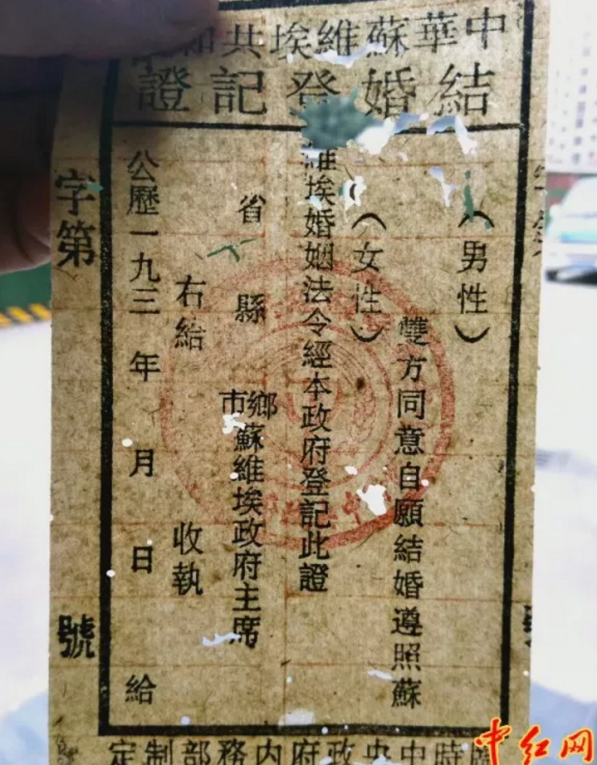 中華蘇維埃共和
結婚登記證
（男性）
雙方同意自願結婚遵照蘇
（女性）
維埃婚姻法令經本政府登記此證
省 縣 鄉市蘇維埃政府主席
右給 收執
公歷一九三 年 月 日 給
字第 號
時中央政府內務部制定
中红网